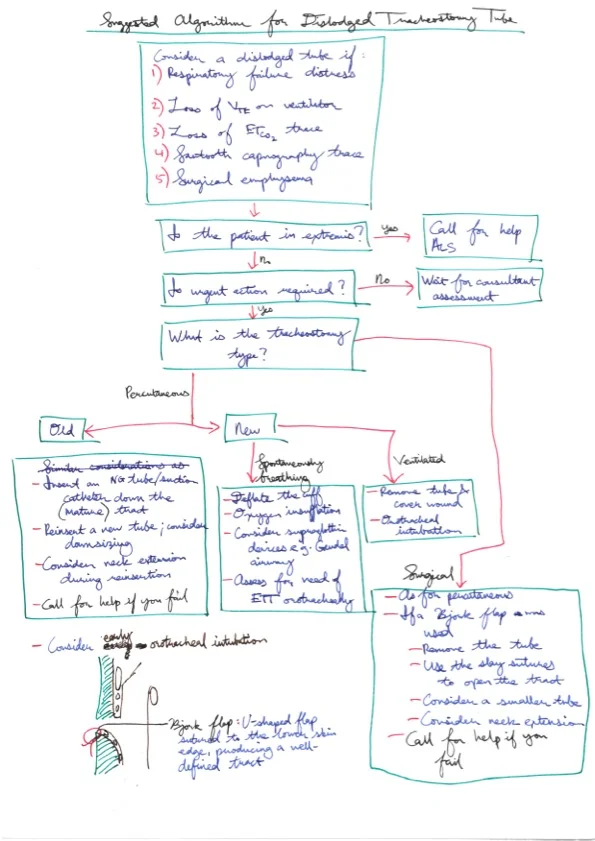 Suggested Algorithm for Dislodged Tracheostomy Tube
Consider a dislodged tube if:
1) Respiratory failure distress
2) Loss of VTE on ventilator
3) Loss of ETCO2 trace
4) Sawtooth capnography trace
5) Surgical emphysema
Is the patient in extremis?
Yes
Call for help
ALS
No
Is urgent action required?
No
Wait for consultant
assessment
Yes
What is the tracheostomy
type?
Percutaneous
Old
New
Similar considerations as
- Insert an NG tube/suction
catheter down the
(mature) tract
- Reinsert a new tube; consider
downsizing
- Consider neck extension
during reinsertion
- Call for help if you fail
- Consider early orotracheal intubation
Spontaneously
breathing
- Deflate the cuff
- Oxygen insufflation
- Consider supraglottic
devices e.g. Guedal
airway
- Assess for need of
ETT orotracheally
Ventilated
- Remove tube &
cover wound
- Orotracheal
intubation
Surgical
- As for percutaneous
- If a Bjork flap was
used
- Remove the tube
- Use the stay sutures
to open the tract
- Consider a smaller tube
- Consider neck extension
- Call for help if you
fail
Bjork flap: U-shaped flap
sutured to the lower skin
edge, producing a well-
defined tract